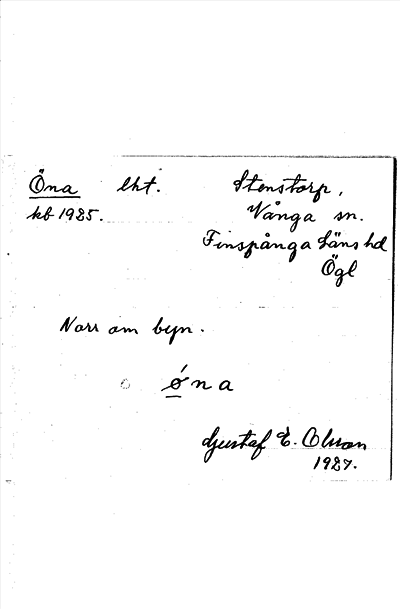 Öna lht. Stenstorp,
kb 1925. Vånga sn.
Finspånga läns hd
Ögl
Norr om byn.
ǿna
Gustaf E. Olsson
1927.